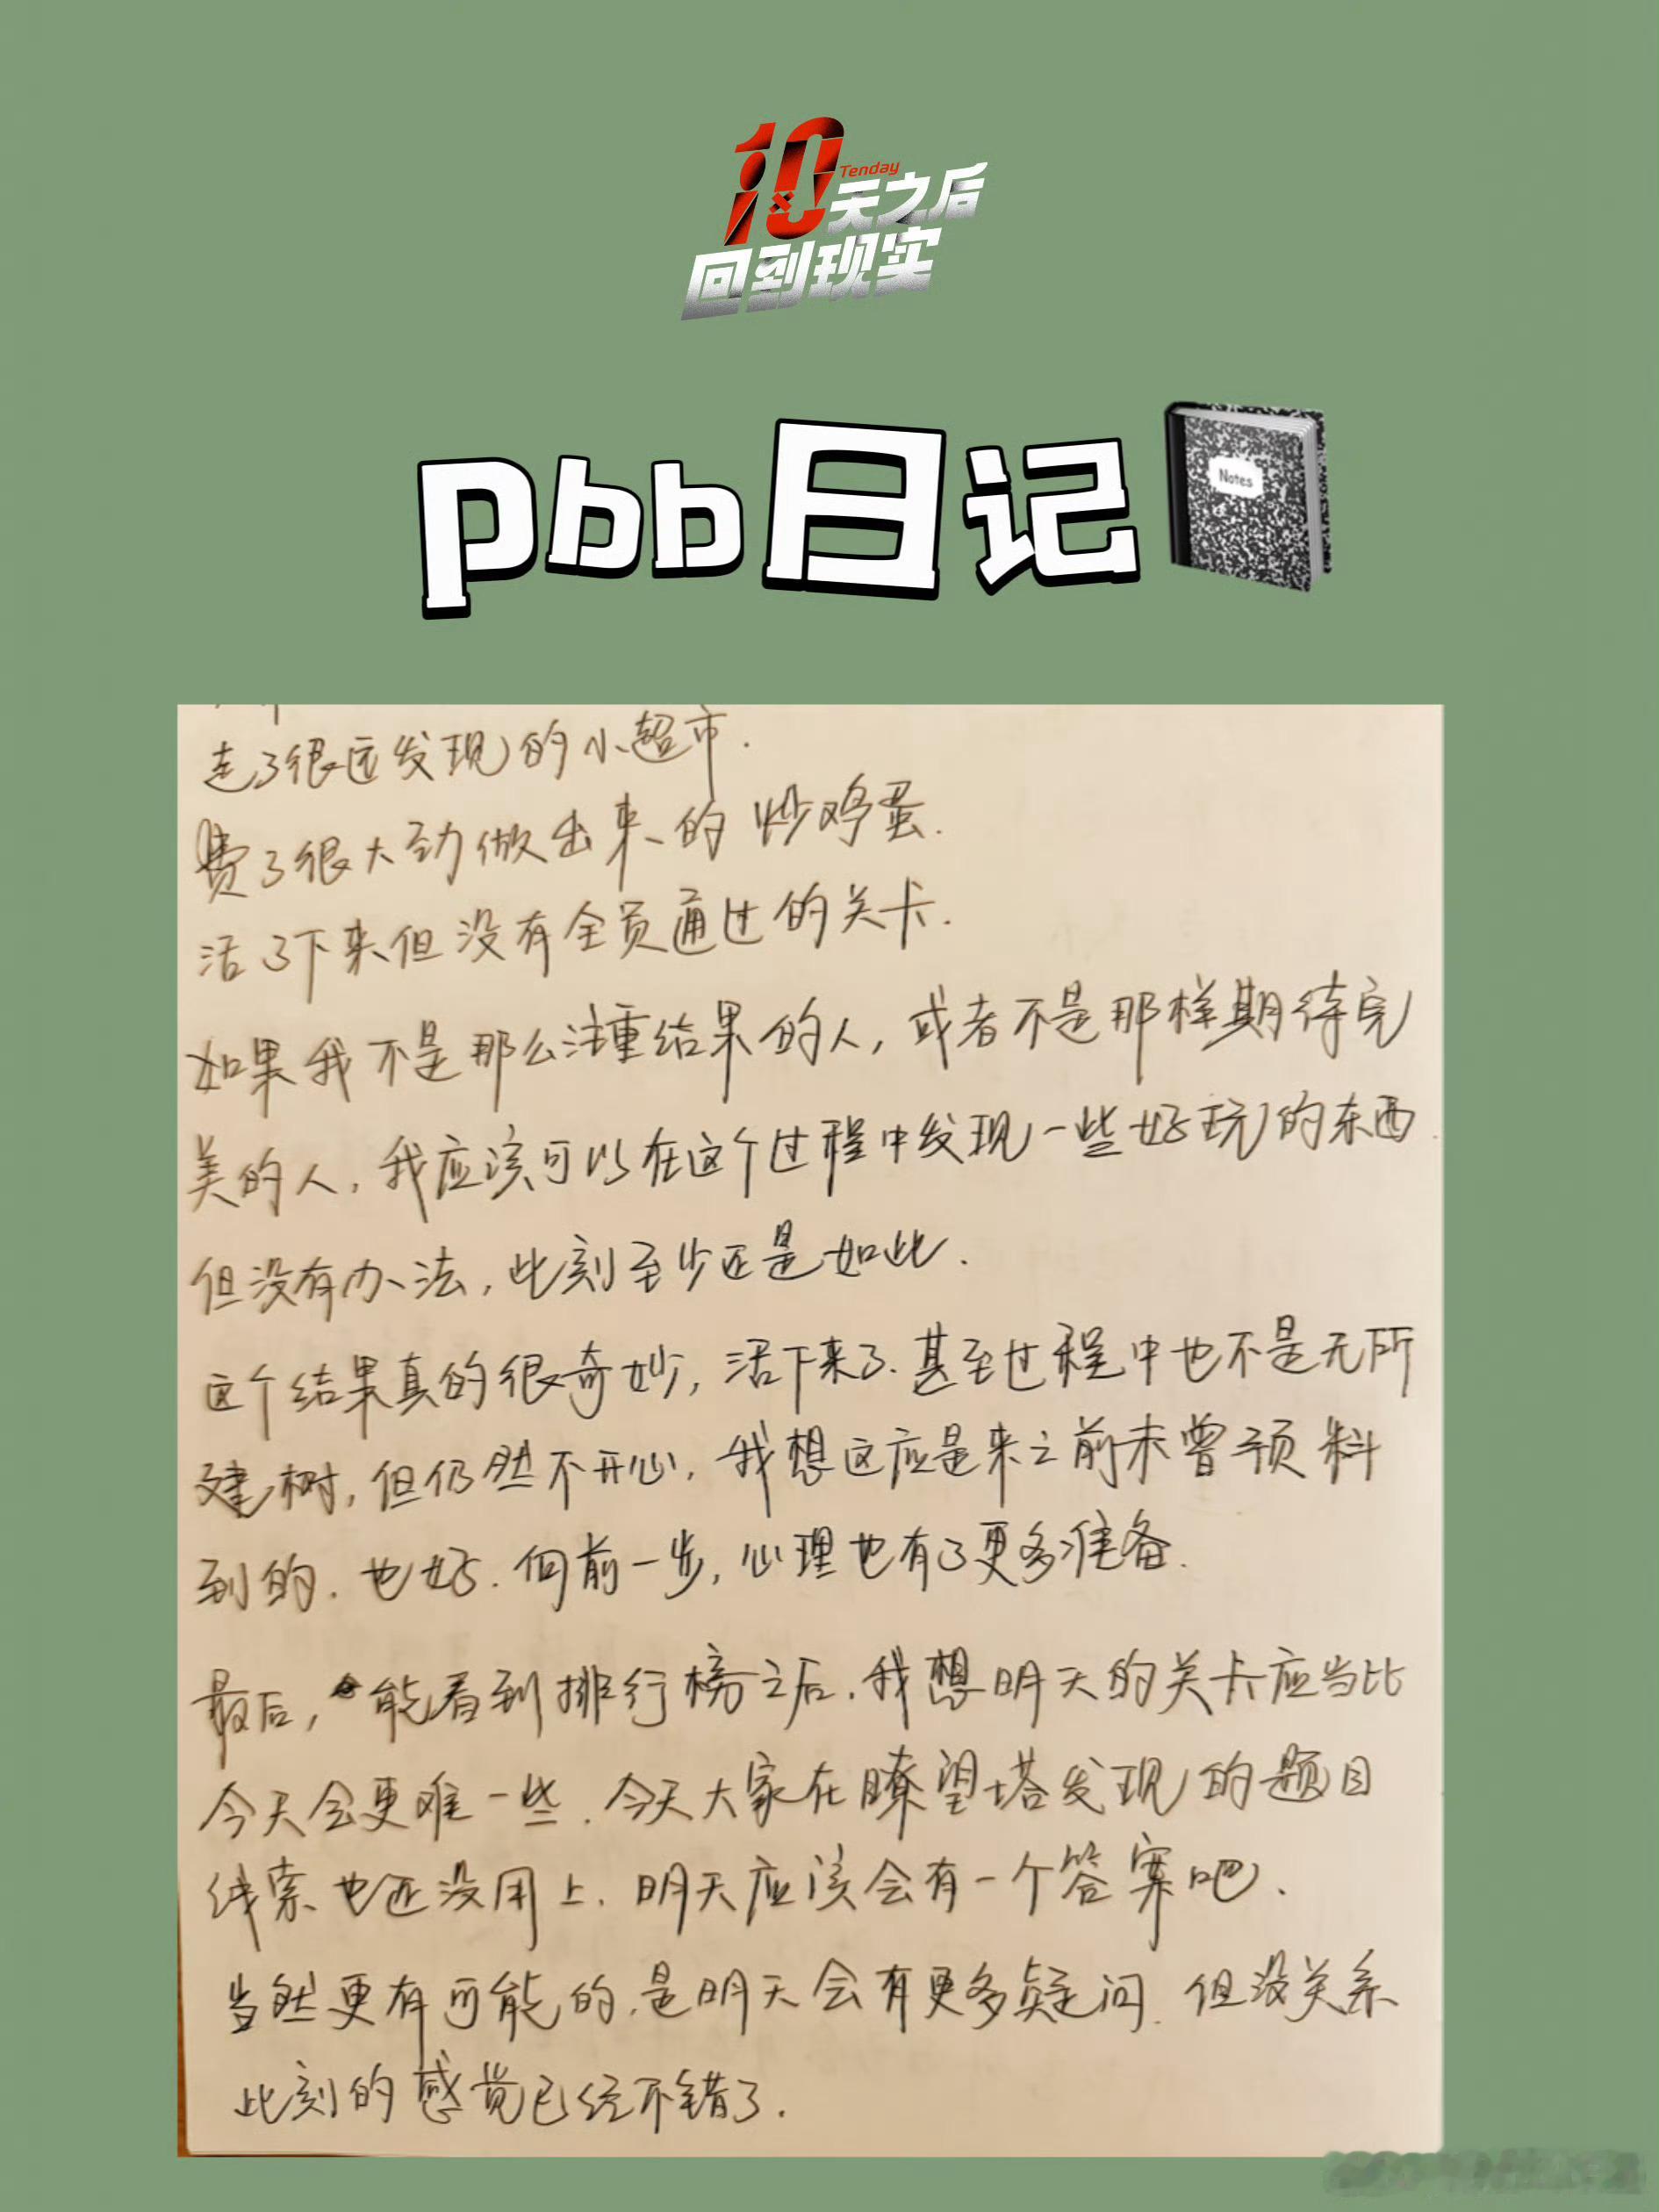 10天之后
Tenday
回到现实
pbb日记
Notes
走了很远发现的小超市.
费了很大劲做出来的炒鸡蛋.
活了下来但没有全员通过的关卡.
如果我不是那么注重结果的人，或者不是那样期待完
美的人，我应该可以在这个过程中发现一些好玩的东西.
但没有办法，此刻至少还是如此.
这个结果真的很奇妙，活下来了.甚至过程中也不是无所
建树，但仍然不开心，我想这应是来之前未曾预料
到的.也好.向前一步，心理也有了更多准备.
最后，能看到排行榜之后.我想明天的关卡应当比
今天会更难一些.今天大家在瞭望塔发现的题目
线索也还没用上.明天应该会有一个答案吧.
当然更有可能的.是明天会有更多疑问.但没关系
此刻的感觉已经不错了.